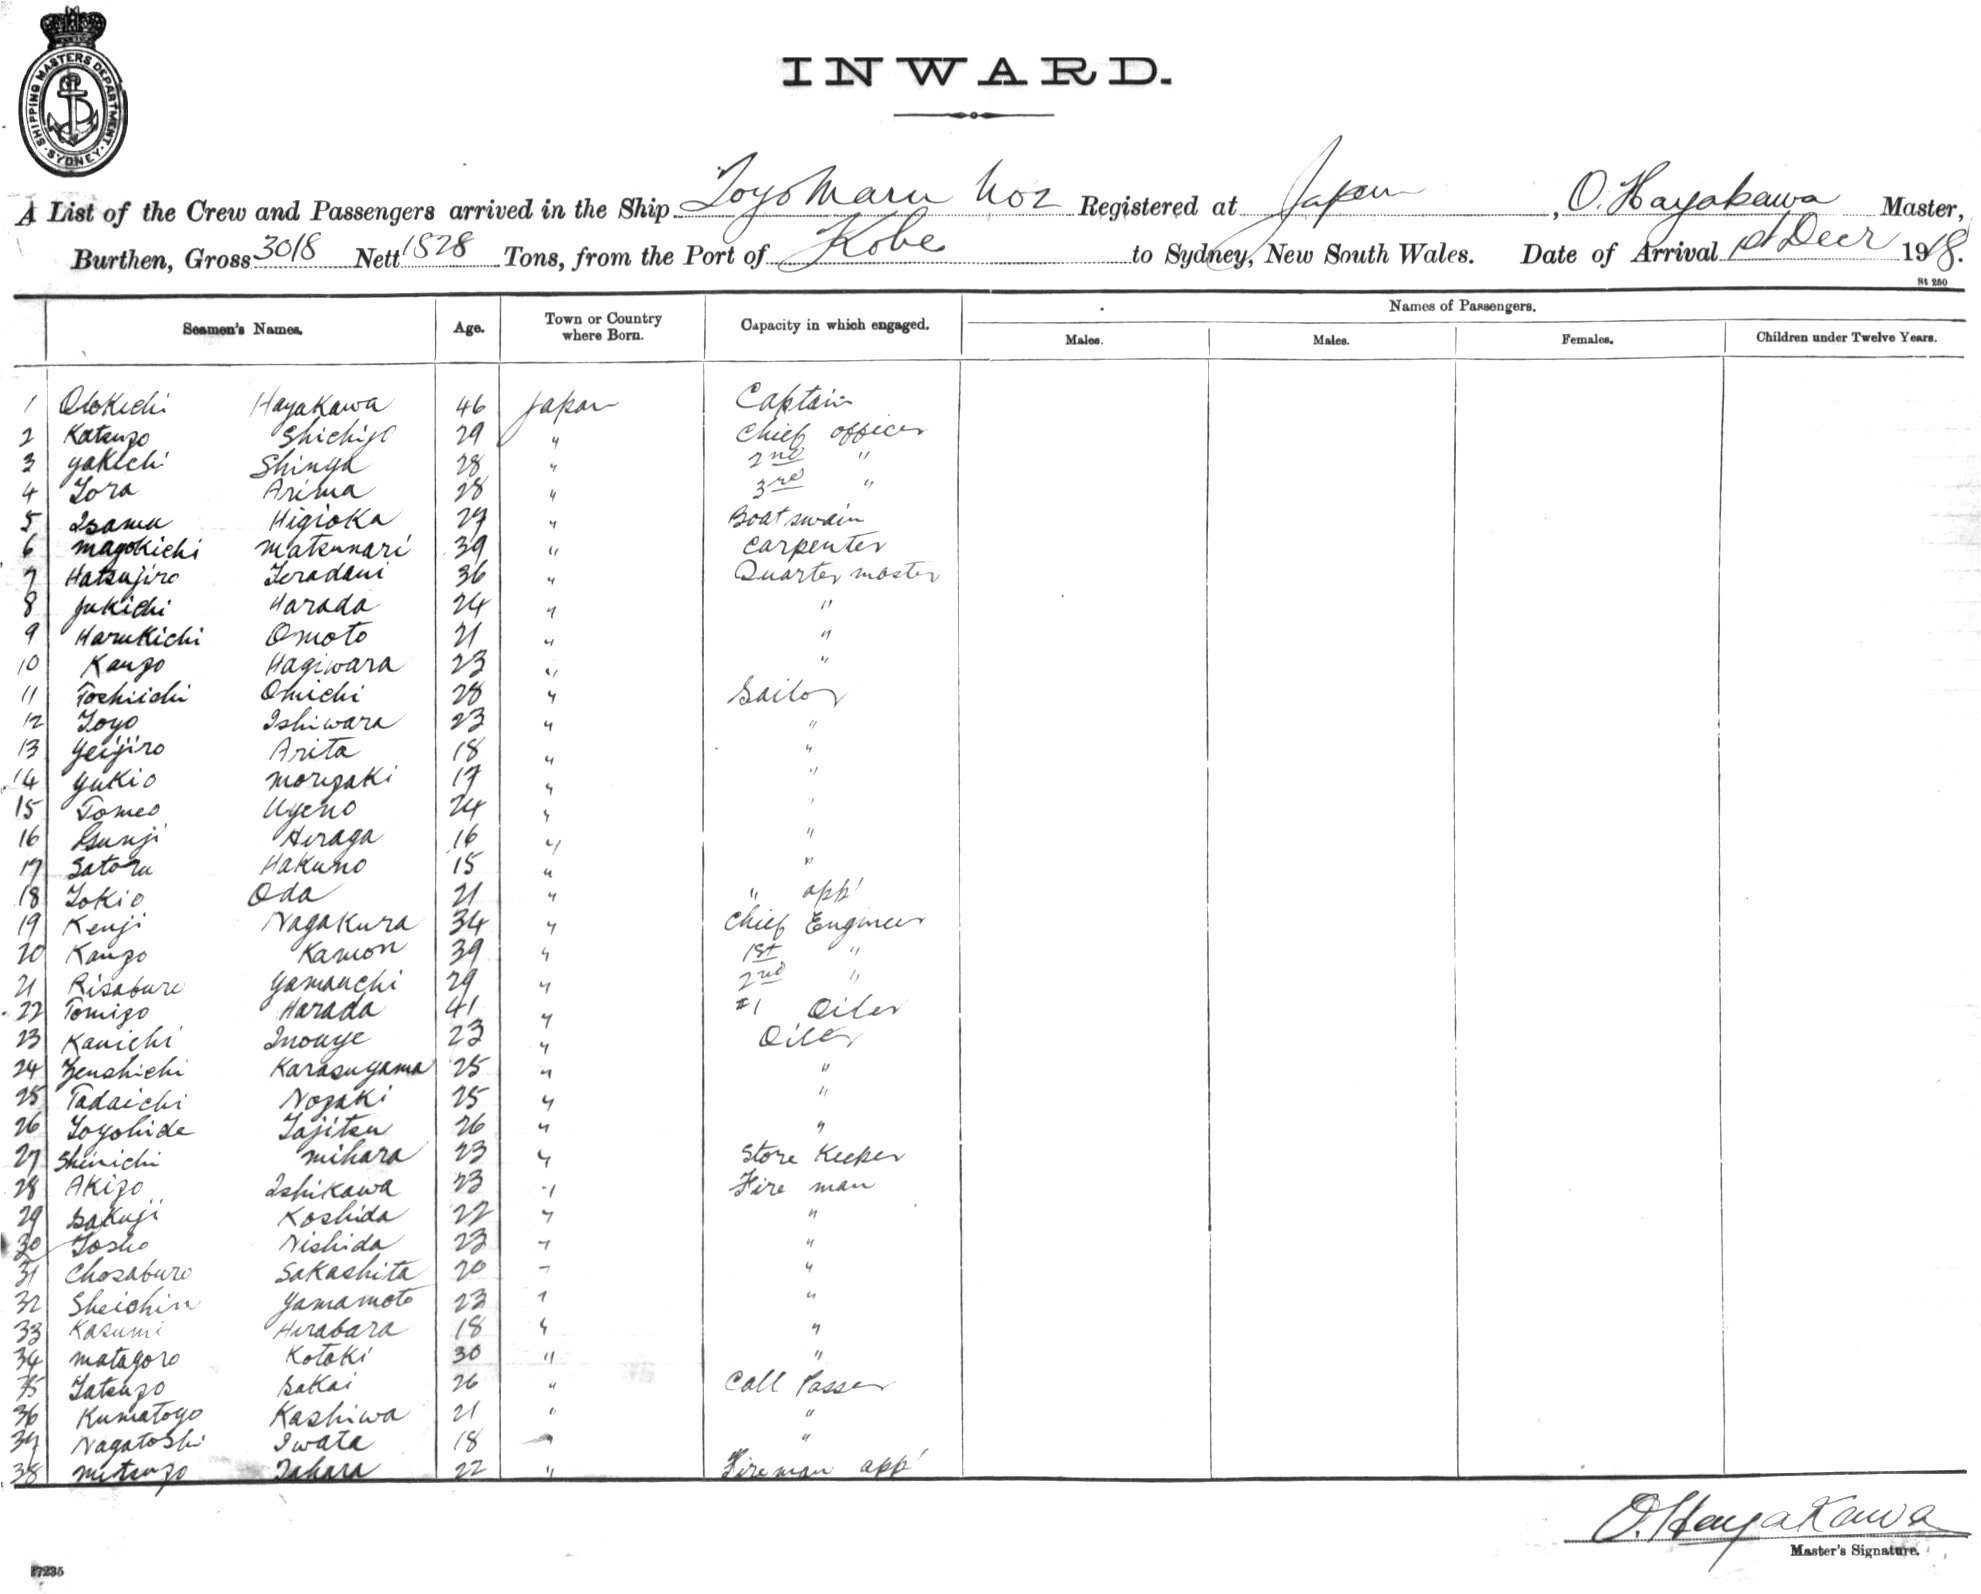 SHIPPING MASTERS DEPARTMENT. SYDNEY.
INWARD.
A List of the Crew and Passengers arrived in the Ship Toyo Maru No2 Registered at Japan, O. Hayakawa Master,
Burthen, Gross 3018 Nett 1828 Tons, from the Port of Kobe to Sydney, New South Wales. Date of Arrival 1st Decr 1918.
St 250
Seamen's Names. Age. Town or Country where Born. Capacity in which engaged. Names of Passengers.
Males. Males. Females. Children under Twelve Years.
1 Otokichi Hayakawa 46 Japan Captain
2 Katsuzo Shichijo 29 " Chief officer
3 Yakichi Shinya 28 " 2nd "
4 Tora Arima 28 " 3rd "
5 Isamu Higioka 27 " Boatswain
6 Magokichi Matsunari 39 " Carpenter
7 Hatsujiro Teradani 36 " Quarter master
8 Jukichi Harada 24 " "
9 Harukichi Omoto 21 " "
10 Kanzo Hagiwara 23 " "
11 Toshiichi Omichi 28 " Sailor
12 Toyo Ishiwara 23 " "
13 Yeijiro Arita 18 " "
14 Yukio Morizaki 17 " "
15 Tomeo Uyeno 24 " "
16 Gunji Hiraga 16 " "
17 Satoru Hakuno 15 " "
18 Tokio Oda 21 " " app'
19 Kenji Nagakura 34 " Chief Engineer
20 Kanzo Kamon 39 " 1st "
21 Risaburo Yamauchi 29 " 2nd "
22 Tomizo Harada 41 " #1 Oiler
23 Kanichi Inouye 23 " Oiler
24 Zenshichi Karasuyama 25 " "
25 Tadaichi Nozaki 25 " "
26 Toyohide Tajitsu 26 " "
27 Shinichi Mihara 23 " Store Keeper
28 Akizo Ishikawa 23 " Fire man
29 Sakuji Koshida 22 " "
30 Tosho Nishida 23 " "
31 Chosaburo Sakashita 20 " "
32 Sheichin Yamamoto 23 " "
33 Kasumi Hirabara 18 " "
34 Matagoro Kotaki 30 " "
35 Tatsuzo Sakai 26 " Call Passer
36 Kumatoyo Kashiwa 21 " "
37 Nagatoshi Iwata 18 " "
38 Mitsuzo Tahara 22 " Fireman app'
O. Hayakawa
Master's Signature.
17235